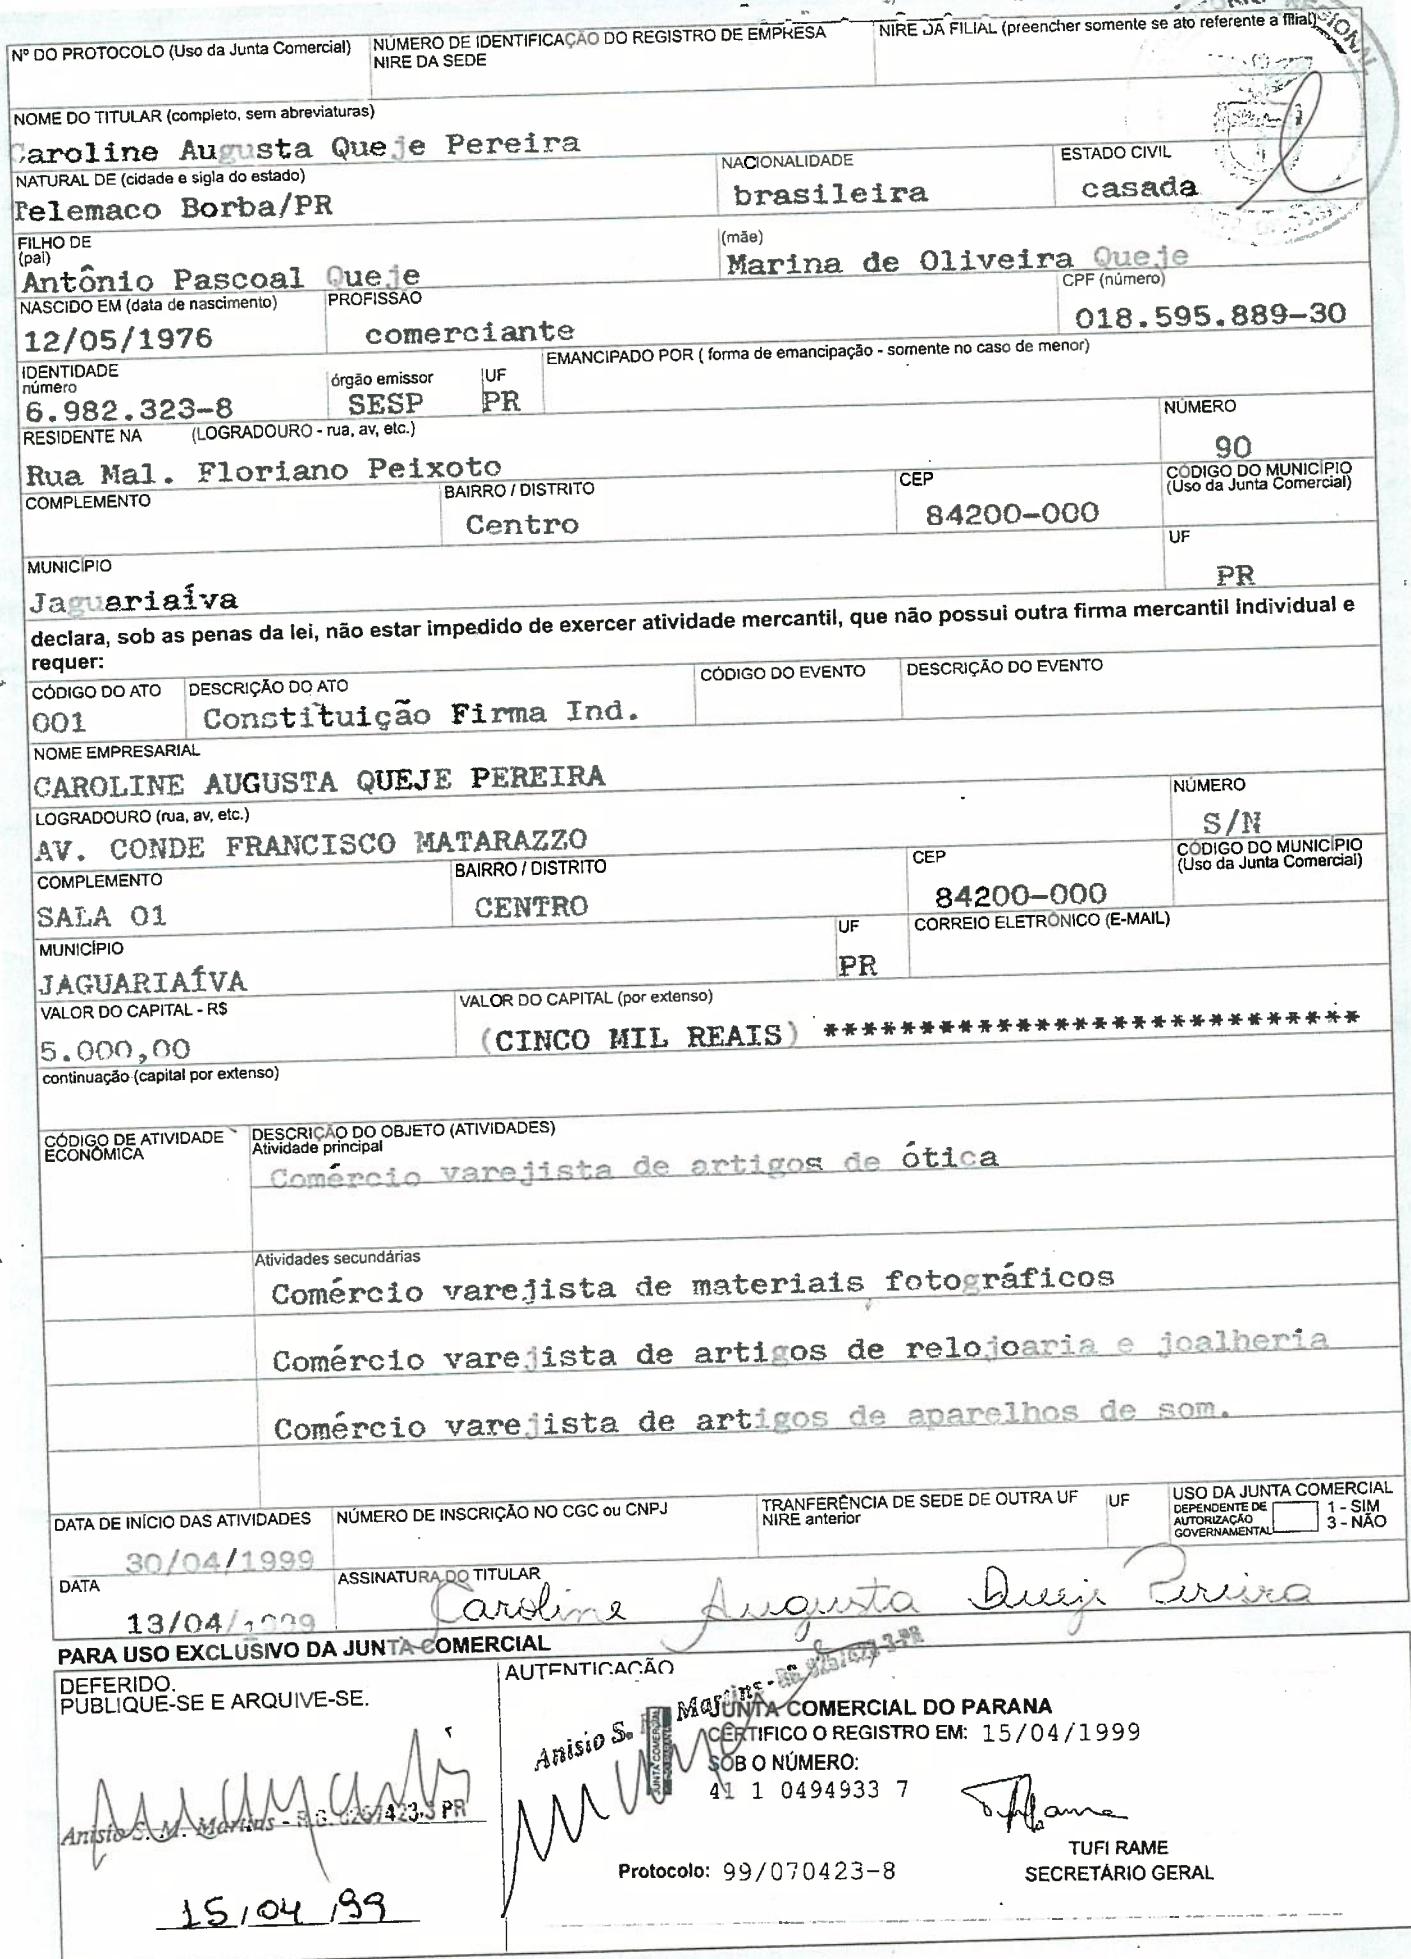 Nº DO PROTOCOLO (Uso da Junta Comercial)
NÚMERO DE IDENTIFICAÇÃO DO REGISTRO DE EMPRESA
NIRE DA SEDE
NIRE DA FILIAL (preencher somente se ato referente a filial)
NOME DO TITULAR (completo, sem abreviaturas)
Caroline Augusta Queje Pereira
NATURAL DE (cidade e sigla do estado)
Telemaco Borba/PR
NACIONALIDADE
brasileira
ESTADO CIVIL
casada
FILHO DE
(pai)
Antônio Pascoal Queje
(mãe)
Marina de Oliveira Queje
NASCIDO EM (data de nascimento)
12/05/1976
PROFISSÃO
comerciante
CPF (número)
018.595.889-30
IDENTIDADE
número
6.982.323-8
órgão emissor
SESP
UF
PR
EMANCIPADO POR ( forma de emancipação - somente no caso de menor)
RESIDENTE NA (LOGRADOURO - rua, av, etc.)
Rua Mal. Floriano Peixoto
NÚMERO
90
COMPLEMENTO
BAIRRO / DISTRITO
Centro
CEP
84200-000
CÓDIGO DO MUNICÍPIO
(Uso da Junta Comercial)
MUNICÍPIO
Jaguariaíva
UF
PR
declara, sob as penas da lei, não estar impedido de exercer atividade mercantil, que não possui outra firma mercantil individual e
requer:
CÓDIGO DO ATO
001
DESCRIÇÃO DO ATO
Constituição Firma Ind.
CÓDIGO DO EVENTO
DESCRIÇÃO DO EVENTO
NOME EMPRESARIAL
CAROLINE AUGUSTA QUEJE PEREIRA
LOGRADOURO (rua, av, etc.)
AV. CONDE FRANCISCO MATARAZZO
NÚMERO
S/N
COMPLEMENTO
SALA 01
BAIRRO / DISTRITO
CENTRO
CEP
84200-000
CÓDIGO DO MUNICÍPIO
(Uso da Junta Comercial)
MUNICÍPIO
JAGUARIAÍVA
UF
PR
CORREIO ELETRÔNICO (E-MAIL)
VALOR DO CAPITAL - R$
5.000,00
VALOR DO CAPITAL (por extenso)
(CINCO MIL REAIS) ****************************
continuação (capital por extenso)
CÓDIGO DE ATIVIDADE
ECONÔMICA
DESCRIÇÃO DO OBJETO (ATIVIDADES)
Atividade principal
Comércio varejista de artigos de ótica
Atividades secundárias
Comércio varejista de materiais fotográficos
Comércio varejista de artigos de relojoaria e joalheria
Comércio varejista de artigos de aparelhos de som.
DATA DE INÍCIO DAS ATIVIDADES
30/04/1999
NÚMERO DE INSCRIÇÃO NO CGC ou CNPJ
TRANFERÊNCIA DE SEDE DE OUTRA UF
NIRE anterior
UF
USO DA JUNTA COMERCIAL
DEPENDENTE DE
AUTORIZAÇÃO
GOVERNAMENTAL
1 - SIM
3 - NÃO
DATA
13/04/1999
ASSINATURA DO TITULAR
Caroline Augusta Queje Pereira
PARA USO EXCLUSIVO DA JUNTA COMERCIAL
DEFERIDO.
PUBLIQUE-SE E ARQUIVE-SE.
Anisio S. M. Martins
15/04/99
AUTENTICAÇÃO
Anisio S. Martins
JUNTA COMERCIAL DO PARANA
CERTIFICO O REGISTRO EM: 15/04/1999
SOB O NÚMERO:
41 1 0494933 7
Protocolo: 99/070423-8
TUFI RAME
SECRETÁRIO GERAL